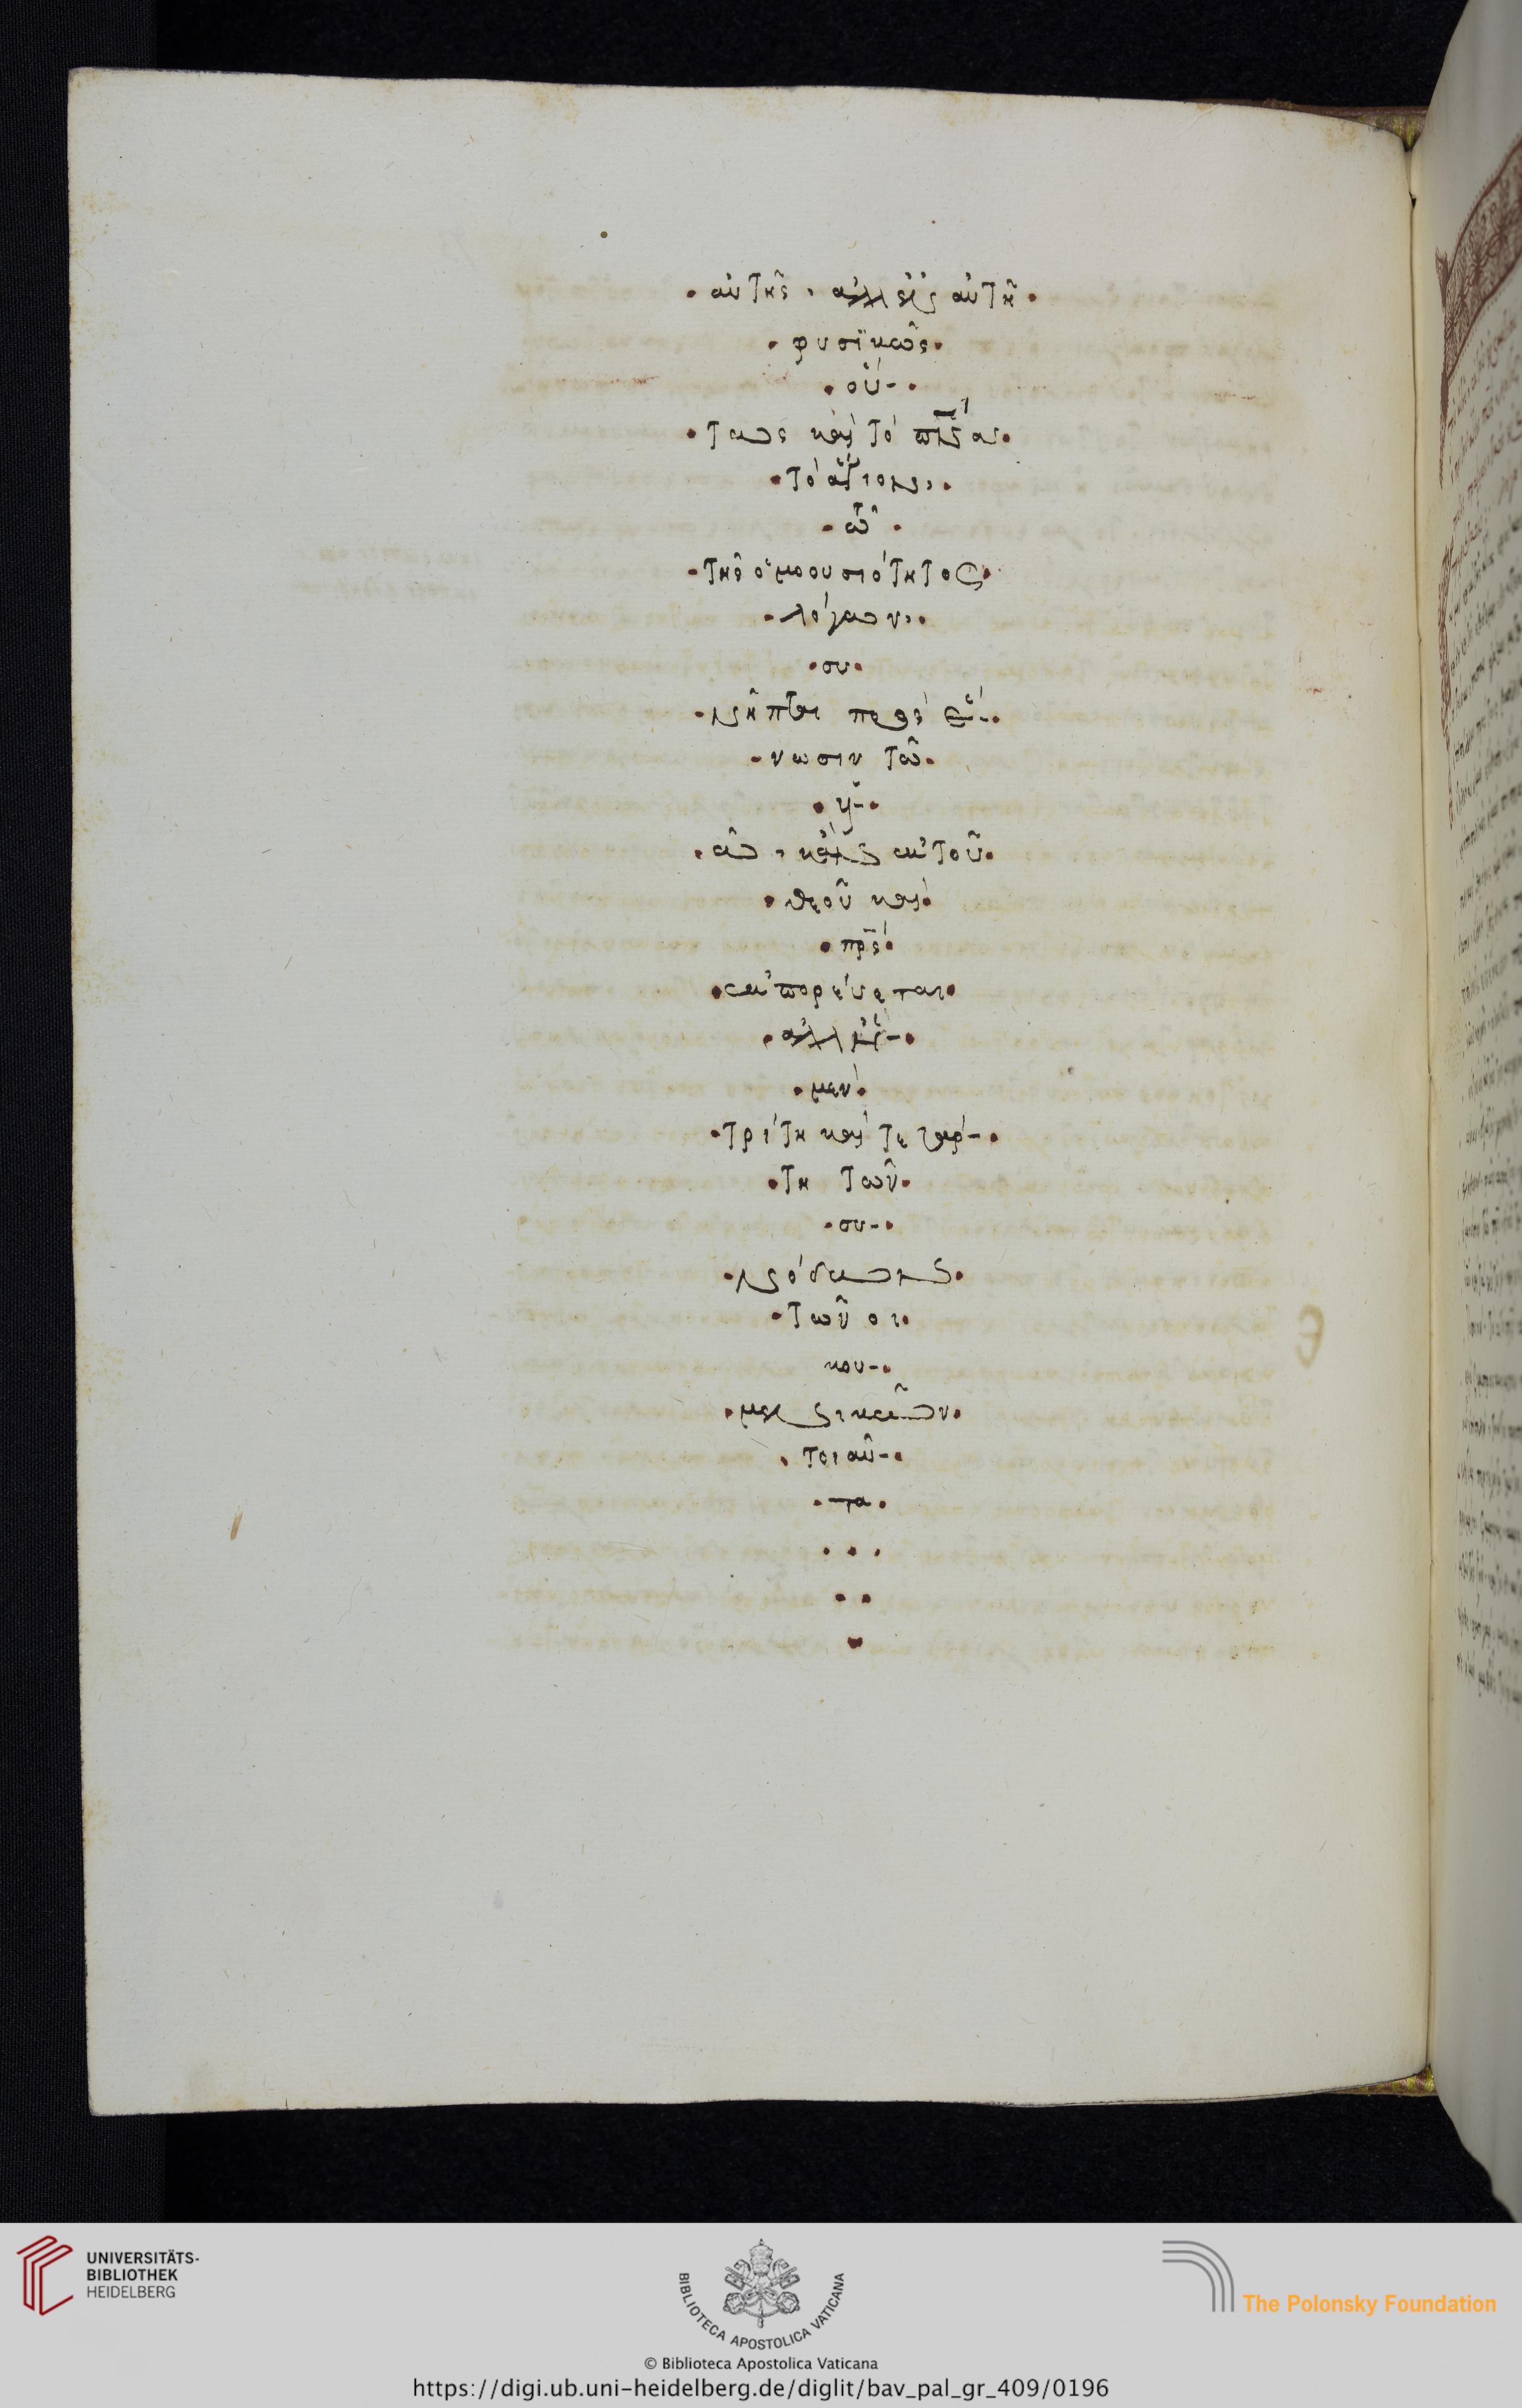 • αὐτῆς · ἀλλ εἰς αὐτὴ •
• φυσϊκῶς •
• οὕ- •
• τως καὶ τὸ πν̅ς •
• τὸ ἅγιον •
• ὦ •
• τῆς ὁμοουσιότητος •
• λόγων •
• συ •
• νῆπται πρὸς ἕ- •
• νωσιν τῶ •
• υ- •
• ἐκ τοῦ •
• θεοῦ καὶ •
• πρ̅ς •
• ἐκπορεύεται •
• ἀλλ •
• μὲν •
• τρίτη καὶ τετάρ- •
• τη τῶν •
• συ- •
• νόδων •
• τῶν οι •
κου- •
• μενικῶν •
• τοιαῦ- •
• τα •
UNIVERSITÄTS-
BIBLIOTHEK
HEIDELBERG
BIBLIOTECA APOSTOLICA VATICANA
The Polonsky Foundation
© Biblioteca Apostolica Vaticana
https://digi.ub.uni-heidelberg.de/diglit/bav_pal_gr_409/0196